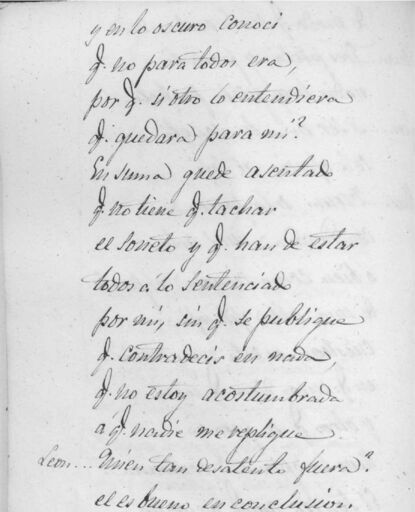 y en lo oscuro conoci
q. no para todos era,
por q. si otro lo entendiera
q. quedara para mi?
En suma quede asentado
q. no tiene q. tachar
el soneto y q. han de estar
todos á lo sentenciado
por mi, sin q. se publique
q. contradecis en nada,
q. no estoy acostumbrada
a q. nadie me replique
Leon... Quien tan desatento fuera?
el es bueno en conclusion.